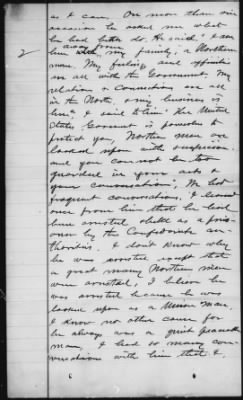 as I can. On more than one
occasion he asked me what
he had better do. He said "I am
2
here away from my family, a Northern
man. My feelings and affinities
are all with the Government. My
relations & connections are all
in the North, & my business is
here." & I said to him "the United
States Government is powerless to
protect you, Northern men are
looked upon with suspicion
and you can not be too
guarded in your acts &
your conversation", We had
frequent conversations, & I learned
once from him that he had
been arrested & held as a pris-
oner by the Confederate au-
thorities. I don't know why
he was arrested except that
a great many Northern men
were arrested, I believe he
was arrested because he was
looked upon as a Union man,
I know no other cause for
he always was a quiet peaceable
man, I had so many con-
versations with him that I